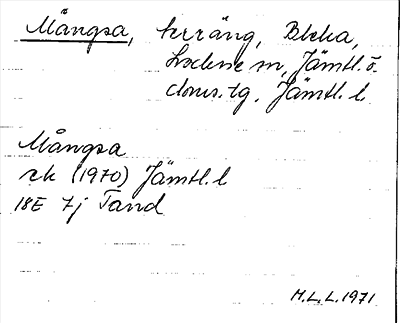 Mångsa, terräng, Bleka,
Lockne sn, Jämtl. ö.
doms.tg. Jämtl. l.
Mångsa
ek (1970) Jämtl. l
18E 7j Tand
M.L.L. 1971